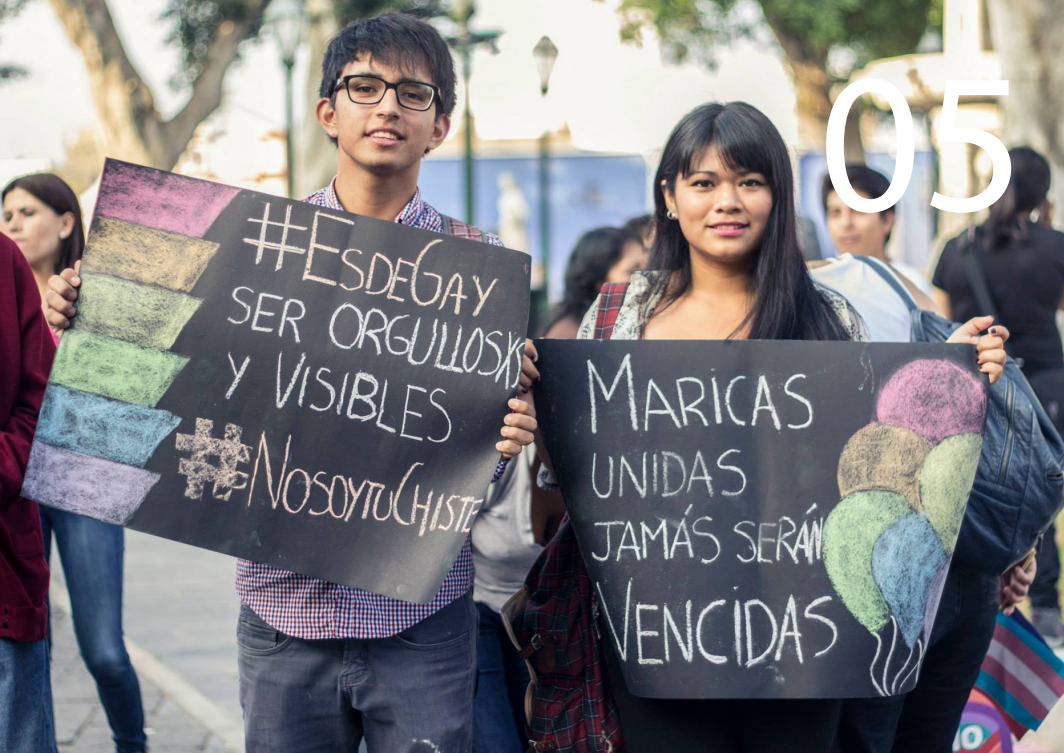 05
#ESDEGAY
SER ORGULLOSXS
Y VISIBLES
#NOSOYTUCHISTE
MARICAS
UNIDAS
JAMÁS SERÁN
VENCIDAS